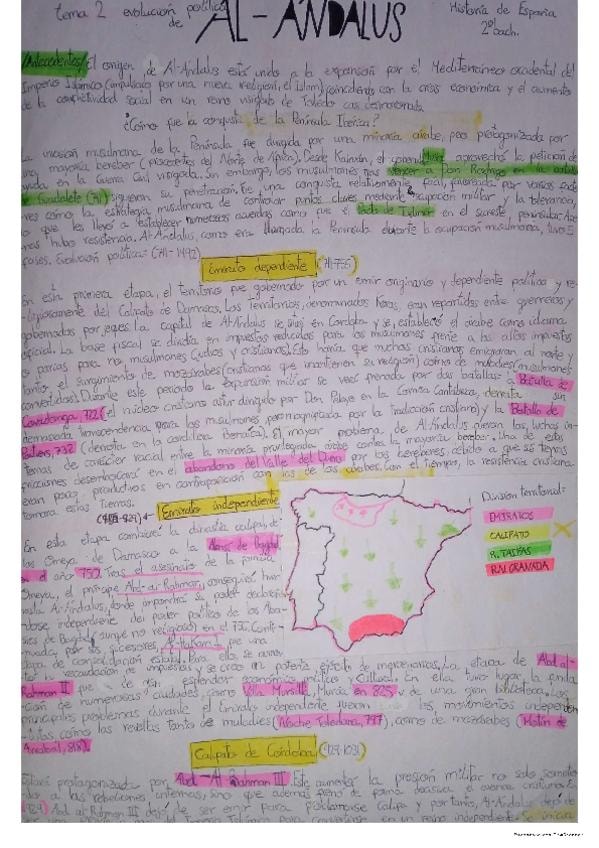 tema 2 evolución política de AL-ÁNDALUS Historia de España 2º bach.
Antecedentes/ El origen de Al-Ándalus está unido a la expansión por el Mediterráneo occidental del
Imperio Islámico (impulsado por una nueva religión, el Islam) coincidiendo con la crisis económica y el aumento
de la conflictividad social en un reino visigodo de Toledo
¿Cómo fue la conquista de la Península Ibérica?
La invasión musulmana de la Península fue dirigida por una minoría árabe, pero protagonizada por
una mayoría bereber (procedentes del Norte de África). Desde Kairuán, el aprovechó la petición de
ayuda en la Guerra Civil visigoda. Sin embargo, los musulmanes tras vencer a Don Rodrigo en la batalla
de Guadalete (711) siguieron su penetración. Fue una conquista relativamente fácil, favorecida por varios
como la estrategia musulmana de controlar puntos claves mediante ocupación militar y la tolerancia,
lo que les llevó a establecer numerosos acuerdos como fue el Pacto de Tudmir en el sureste peninsular.
hubo resistencia. Al-Ándalus, como era llamada la Península durante la ocupación musulmana, tuvo 5
fases. Evolución política= (711-1492)
Emirato dependiente (711-756)
En esta primera etapa, el territorio fue gobernado por un emir originario y dependiente política y re-
ligiosamente del Califato de Damasco. Los territorios, denominados eran repartidos entre guerreros y
gobernados por jeques. La capital de Al-Ándalus se situó en Córdoba y se estableció el árabe como idioma
oficial. La base fiscal se dividía en impuestos reducidos para los musulmanes frente a los altos impuestos
o parias para no musulmanes (judíos y cristianos). Esto haría que muchos cristianos emigraran al norte y
tanto, el surgimiento de mozárabes (cristianos que mantienen su religión) como de muladíes (musulmanes
convertidos). Durante este periodo la expansión militar se verá frenada por dos batallas: la Batalla de
Covadonga, 722 (el núcleo cristiano astur dirigido por Don Pelayo en la Cornisa Cantábrica, derrota sin
demasiada trascendencia para los musulmanes pero magnificada por la tradición cristiana) y la Batalla de
Poitiers, 732 (derrota en la cordillera). El mayor problema, de Al-Ándalus fueron las luchas in-
ternas de carácter racial entre la minoría privilegiada árabe contra la mayoría bereber. Una de estas
fricciones desembocará en el abandono del Valle del Duero por los bereberes, debido a que sus tierras
eran poco productivas en contraposición con las de los árabes. Con el tiempo, la resistencia cristiana
tomará estas tierras.
Emirato independiente
En esta etapa comienza la dinastía califal, de
los Omeya de Damasco a la Abasí de Bagdad
en el año 750. Tras el asesinato de la familia
Omeya, el príncipe Abd-al-Rahman, conseguirá huir
hasta Al-Ándalus, donde impondrá su poder declarán-
dose independiente del poder político de los Aba-
síes de Bagdad, (aunque no religioso) en el 756. Conti-
nuada por sus sucesores, Al-Hakam I, fue una
etapa de consolidación estatal. Para ello se aumen-
tó la recaudación de impuestos y se creó un potente ejército de mercenarios. La etapa de Abd al-
Rahman II fue de gran esplendor económico, político y cultural. En ella tuvo lugar la funda-
ción de numerosas ciudades, como Murcia en 825, y de una gran biblioteca. Los
principales problemas durante el Emirato independiente fueron los movimientos independen-
tistas como las revueltas tanto de muladíes (Noche Toledana, 797), como de mozárabes (Motín de
Arrabal, 818).
División territorial:
EMIRATOS
CALIFATO
R. TAIFAS
R.N. GRANADA
Califato de Córdoba (929-1031)
Estará protagonizada por Abd-Al-Rahman III. Este aumentó la presión militar no solo someti-
endo a las rebeliones internas, sino que además frenó de forma decisiva el avance cristiano. En
(929) Abd al-Rahman dejó de ser emir para proclamarse califa y por tanto, Al-Ándalus dejó de
para convertirse en un reino independiente. Se inicia